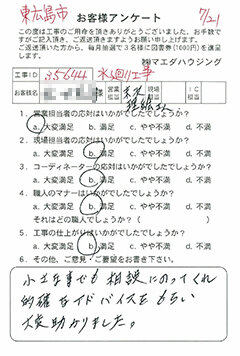 東広島市
お客様アンケート
7/21
この度は工事のご用命を頂きありがとうございました。お手数で
すがご記入頂き、ご返送頂きますようお願い申し上げます。
ご返送頂いた方から、毎月抽選で3名様に図書券(1000円)を進呈
します。
㈱マエダハウジング
工事ID 356644 水廻り工事
お客様名 営業担当 現場担当 IC担当
1. 営業担当者の応対はいかがでしたでしょうか?
a. 大変満足 b. 満足 c. やや不満 d. 不満
2. 現場担当者の応対はいかがでしたでしょうか?
a. 大変満足 b. 満足 c. やや不満 d. 不満
3. コーディネーターの応対はいかがでしたでしょうか?
a. 大変満足 b. 満足 c. やや不満 d. 不満
4. 職人のマナーはいかがでしたでしょうか?
a. 大変満足 b. 満足 c. やや不満 d. 不満
それはどの職人でしょうか?( )
5. 工事の仕上がりはいかがでしたでしょうか?
a. 大変満足 b. 満足 c. やや不満 d. 不満
6. その他、ご意見・ご要望をお書き下さい。
小工事でも相談にのってくれ
的確なアドバイスをもらい
大変助かりました。